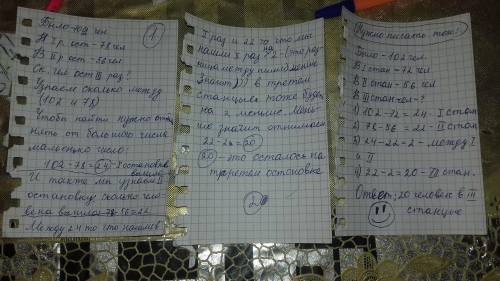 Было-102 чел.
В I р. ост - 78 чел
В II р ост - 56 чел
Ск. чел ост III раз?
Узнаем сколько между
(102 и 78)
Чтоба найти нужно отн
нять от большого числа
маленькое число:
102-78=24-I остановке
вышло
И так же мы узнаем II
остановку сколько чел
века вышло 78-56=22
Между 24 то что нашли в
1
I раз и 22 то что мы
нашли II раз на 2-(это раз
ница между ними)
Значит) в третем
станцыях тоже будет
на 2 меньше. Мень
ше значит отнимаем
22-2=20
20-это осталось на
третей остановке
2
Нужно писать тока!
Было-102 чел.
В I стан-78 чел
В II стан-56 чел
В III стан чел-?
1) 102-78=24-I стан
2) 78-56=22-II стан
3) 24-22=2-между I
и II
4) 22-2=20-III стан.
Ответ: 20 человек в III
станцые